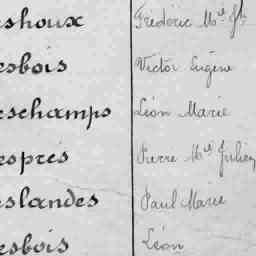 eshoux Frédéric Mie Jh
esbois Victor Eugène
eschamps Léon Marie
esprés Pierre Mie Julien
eslandes Paul Marie
esbois Léon